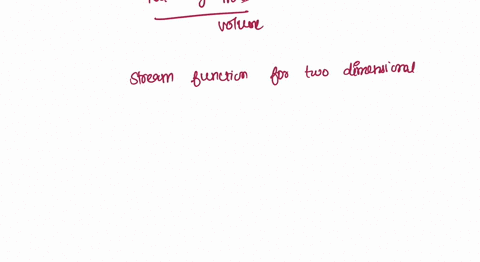 volume
stream function for two dimensional